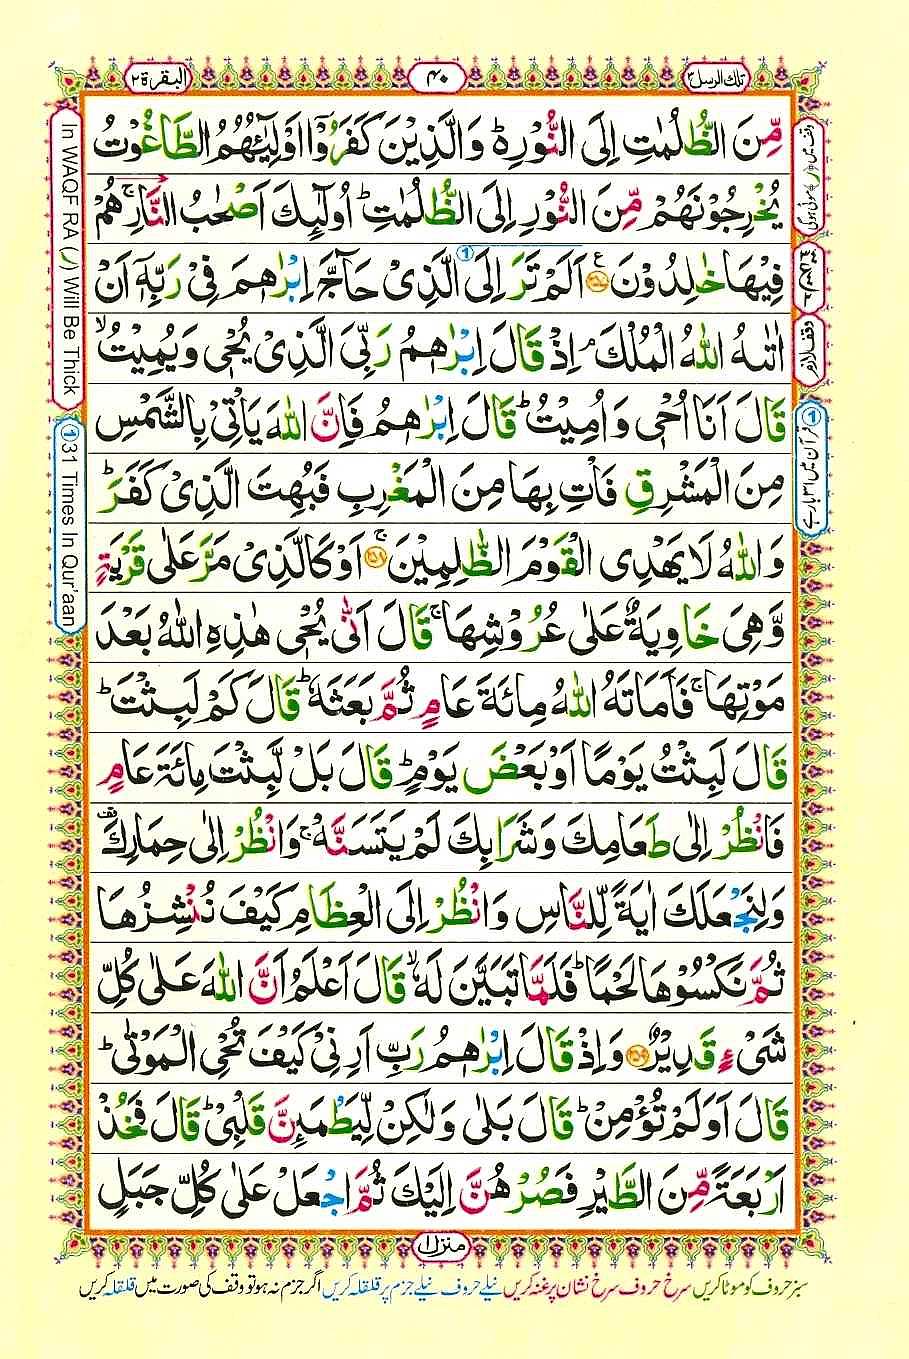 تلك الرسل ٣
٤٠
البقرة ٢
مِّنَ الظُّلُمٰتِ اِلَى النُّوْرِ ؕ وَالَّذِيْنَ كَفَرُوْۤا اَوْلِيٰٓئُهُمُ الطَّاغُوْتُ
يُخْرِجُوْنَهُمْ مِّنَ النُّوْرِ اِلَى الظُّلُمٰتِ ؕ اُولٰٓئِكَ اَصْحٰبُ النَّارِ ۚ هُمْ
فِيْهَا خٰلِدُوْنَ ﴿۲۵۷﴾ اَلَمْ تَرَ اِلَى الَّذِيْ حَآجَّ اِبْرٰهٖمَ فِيْ رَبِّهٖۤ اَنْ
اٰتٰىهُ اللّٰهُ الْمُلْكَ ۘ اِذْ قَالَ اِبْرٰهٖمُ رَبِّيَ الَّذِيْ يُحْيٖ وَيُمِيْتُ ۙ
قَالَ اَنَا اُحْيٖ وَاُمِيْتُ ؕ قَالَ اِبْرٰهٖمُ فَاِنَّ اللّٰهَ يَاْتِيْ بِالشَّمْسِ
مِنَ الْمَشْرِقِ فَاْتِ بِهَا مِنَ الْمَغْرِبِ فَبُهِتَ الَّذِيْ كَفَرَ ؕ
وَاللّٰهُ لَا يَهْدِى الْقَوْمَ الظّٰلِمِيْنَ ۚ﴿۲۵۸﴾ اَوْ كَالَّذِيْ مَرَّ عَلٰى قَرْيَةٍ
وَّهِيَ خَاوِيَةٌ عَلٰى عُرُوْشِهَا ۚ قَالَ اَنّٰى يُحْيٖ هٰذِهِ اللّٰهُ بَعْدَ
مَوْتِهَا ۚ فَاَمَاتَهُ اللّٰهُ مِائَةَ عَامٍ ثُمَّ بَعَثَهٗ ؕ قَالَ كَمْ لَبِثْتَ ؕ
قَالَ لَبِثْتُ يَوْمًا اَوْ بَعْضَ يَوْمٍ ؕ قَالَ بَلْ لَّبِثْتَ مِائَةَ عَامٍ
فَانْظُرْ اِلٰى طَعَامِكَ وَشَرَابِكَ لَمْ يَتَسَنَّهْ ۚ وَانْظُرْ اِلٰى حِمَارِكَ
وَلِنَجْعَلَكَ اٰيَةً لِّلنَّاسِ وَانْظُرْ اِلَى الْعِظَامِ كَيْفَ نُنْشِزُهَا
ثُمَّ نَكْسُوْهَا لَحْمًا ؕ فَلَمَّا تَبَيَّنَ لَهٗ ۙ قَالَ اَعْلَمُ اَنَّ اللّٰهَ عَلٰى كُلِّ
شَيْءٍ قَدِيْرٌ ﴿۲۵۹﴾ وَاِذْ قَالَ اِبْرٰهٖمُ رَبِّ اَرِنِيْ كَيْفَ تُحْيِ الْمَوْتٰى ؕ
قَالَ اَوَلَمْ تُؤْمِنْ ؕ قَالَ بَلٰى وَلٰكِنْ لِّيَطْمَئِنَّ قَلْبِيْ ؕ قَالَ فَخُذْ
اَرْبَعَةً مِّنَ الطَّيْرِ فَصُرْهُنَّ اِلَيْكَ ثُمَّ اجْعَلْ عَلٰى كُلِّ جَبَلٍ
منزل ١
In WAQF RA (ر) Will Be Thick
① 31 Times In Qur'aan
وقف لازم
① قرآن میں ۳۱ بار ہے
سبز حروف کو موٹا کریں سرخ حروف سرخ نشان پر غنہ کریں نیلے حروف نیلے جزم پر قلقلہ کریں اگر جزم نہ ہو تو وقف کی صورت میں قلقلہ کریں